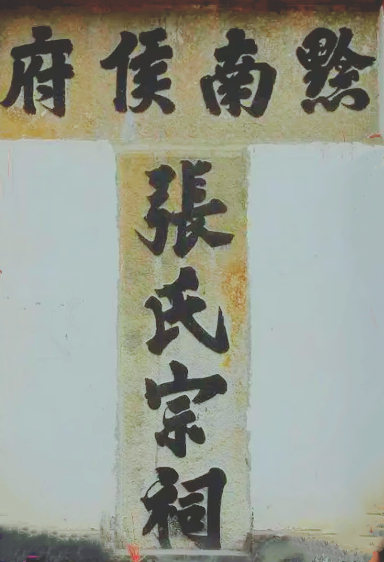 黔南侯府
張氏宗祠